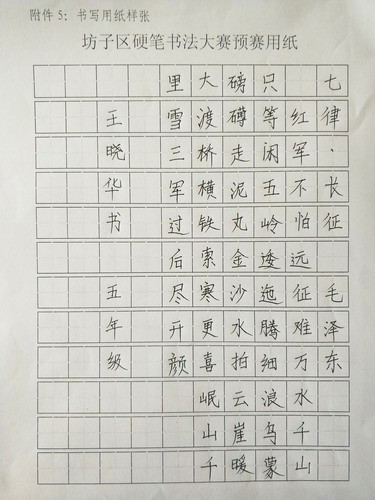 附件5：书写用纸样张
坊子区硬笔书法大赛预赛用纸
七律·长征 毛泽东
红军不怕远征难万水千山
只等闲五岭逶迤腾细浪乌蒙
磅礴走泥丸金沙水拍云崖暖
大渡桥横铁索寒更喜岷山千
里雪三军过后尽开颜
王晓华书 五年级